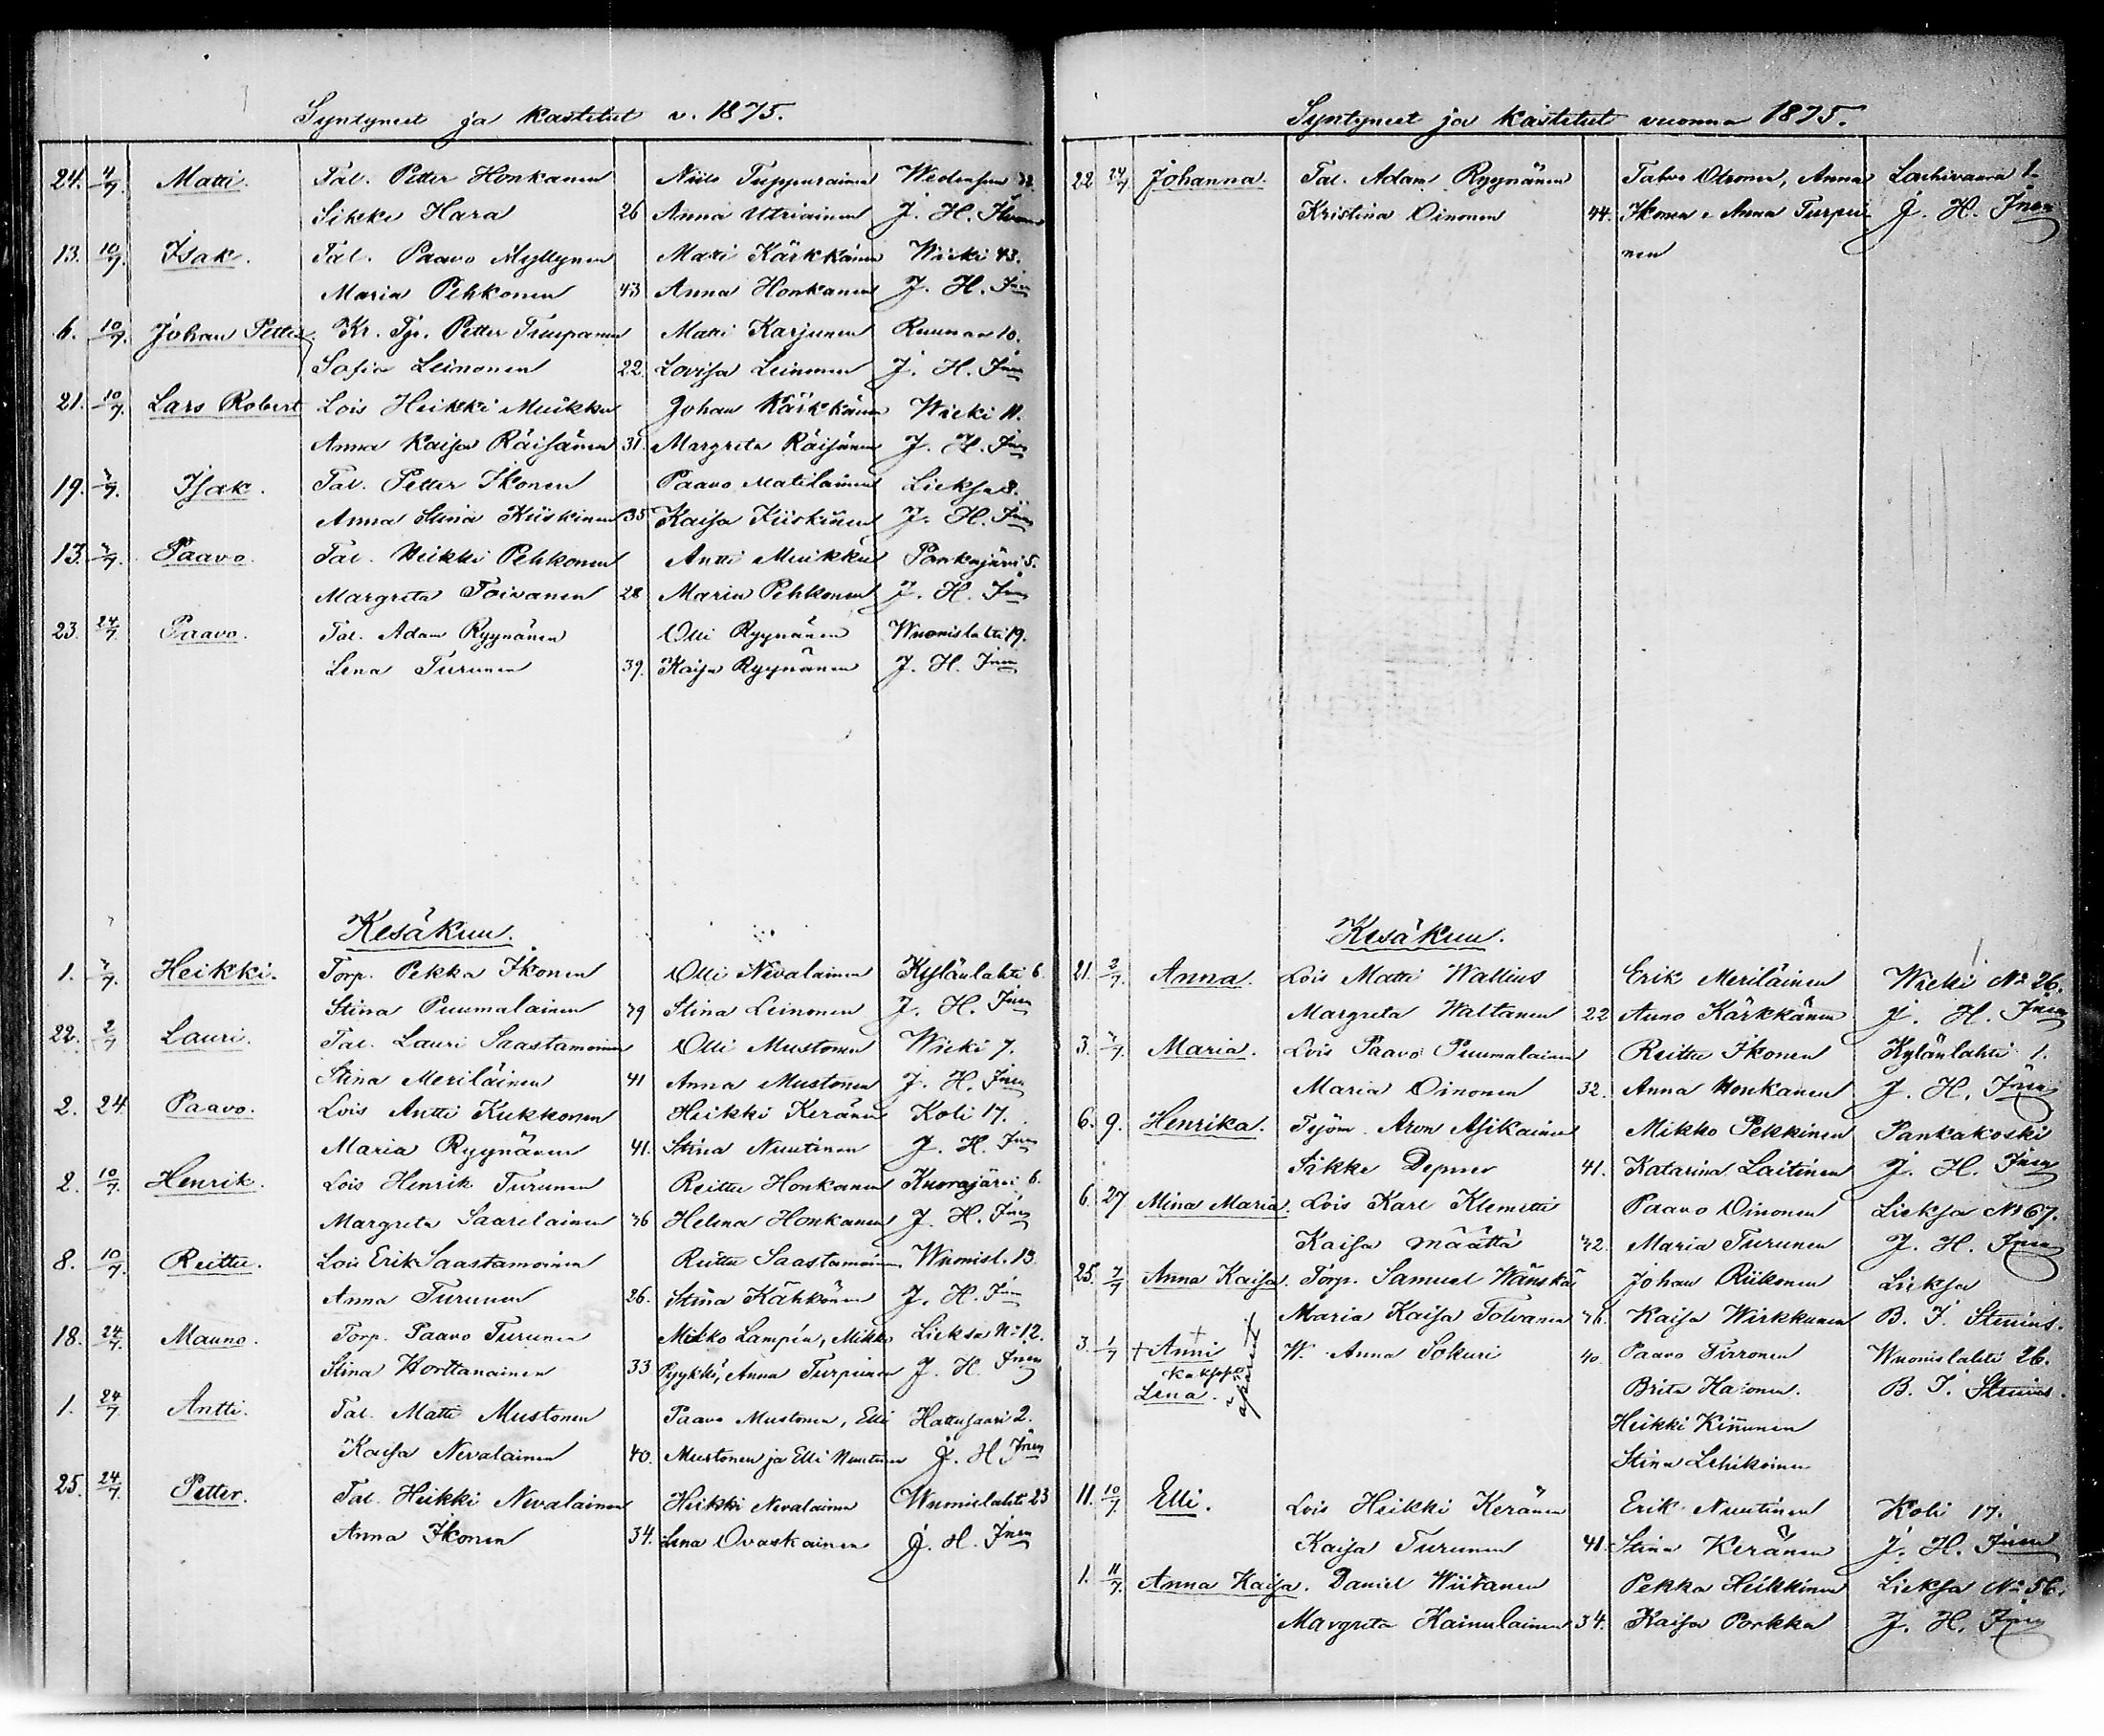 Syntyneet ja kastetut v. 1875.
24. 4/7. Matti. Tal. Petter Honkanen Niilo Tuppurainen
Sikke Hara 26 Anna Utriainen J. H.
13. 10/7. Isak. Tal. Paavo Myllynen Matti Kärkkäinen Wieki 43.
Maria Pehkonen 43 Anna Honkanen J. H. Inen
6. 10/7. Johan Petter. Kr. Tj. Petter Matti Karjunen Ruunaa 10.
Sofia Leinonen 22. Lovisa Leinonen J. H. Inen
21. 10/7. Lars Robert Lois Heikki Muikku Johan Kärkkäinen Wieki 11.
Anna Kaisa Räisänen 31. Margreta Räisänen J. H. Inen
19. Isak. Tal. Petter Ikonen Paavo Matilainen Lieksa 8.
Anna Stina Kiiskinen 35 Kaisa Kiiskinen J. H. Inen
13. Paavo. Tal. Heikki Pehkonen Antti Muikku Pankajärvi 5.
Margreta Toivanen 28 Maria Pehkonen J. H. Inen
23. 24/7. Paavo. Tal. Adam Ryynänen Olli Ryynänen Wuonislahti 19.
Lena Turunen 39. Kaisa Ryynänen J. H. Inen
Kesäkuu.
1. Heikki. Torp. Pekka Ikonen Olli Nevalainen Kylänlahti 6.
Stina Puumalainen 39 Stina Leinonen J. H. Inen
22. 2/7 Lauri. Tal. Lauri Saastamoinen Olli Mustonen Wieki 7.
Stina Meriläinen 41 Anna Mustonen J. H. Inen
2. 24 Paavo. Lois Antti Kukkonen Heikki Keränen Koli 17.
Maria Ryynänen 41. Stina Nuutinen J. H. Inen
2. 10/7. Henrik. Lois Henrik Turunen Reittu Honkanen Kuorajärvi 6.
Margreta Saarelainen 36 Helena Honkanen J. H. Inen
8. 10/7. Reittu. Lois Erik Saastamoinen Reittu Saastamoinen Wuonisl. 13.
Anna Turunen 26. Stina Kähkönen J. H. Inen
18. 24/7. Mauno. Torp. Paavo Turunen Mikko Lampén, Mikko Lieksa No 12.
Stina Worttanainen 33 Pyykkö, Anna Turpeinen J. H. Inen
1. 24/7. Antti. Tal. Matti Mustonen Paavo Mustonen, Elli Hattusaari 2.
Kaisa Nevalainen 40. Mustonen ja Elli Nuutinen J. H Inen
25. 24/7. Petter. Tal. Heikki Nevalainen Heikki Nevalainen Wuonislahti 23
Anna Ikonen 34. Lena Ovaskainen J. H. Inen
Syntyneet ja kastetut vuonna 1875.
22 24/7 Johanna. Tal. Adam Ryynänen Tahvo Otronen, Anna 1.
Kristina Oinonen 44. Ikonen, Anna Turpei J. H. Inen
nen
Kesäkuu.
21. 2/7. Anna. Lois Matti Wallius Erik Meriläinen Wieki No 26.
Margreta Waltanen 22 Anna Kärkkänen J. H. Inen
3. Maria. Lois Paavo Puumalainen Reittu Ikonen Kylänlahti 1.
Maria Oinonen 32. Anna Honkanen J. H. Inen
6. 9. Henrika. Työm. Aron Asikainen Mikko Pekkinen Pankakoski
Sikke Depner 41. Katarina Laitinen J. H. Inen
6. 27 Mina Maria. Lois Karl Klemetti Paavo Oinonen Lieksa No 67.
Kaisa Määttä 32. Maria Turunen J. H. Inen
25. Anna Kaisa. Torp. Samuel Wänskä Johan Riikonen Lieksa
Maria Kaisa Tolvanen 36. Kaisa Wirkkunen B. J. Stenius.
3. 1/7 + Anni W. Anna Sokuri 40. Paavo Tirronen Wuonislahti 26.
Lena. Brita B. J. Stenius.
Heikki Kinnunen
Stina Lehikoinen
11. 10/7 Elli. Lois Heikki Keränen Erik Nuutinen Koli 17.
Kaisa Turunen 41. Stina Keränen J. H. Inen
1. 11/7. Anna Kaisa. Daniel Wiitanen Pekka Heikkinen Lieksa No 56.
Margreta Kainulainen 34. Kaisa Porkka J. H. Inen